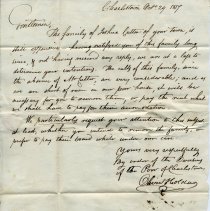 Charlestown Oct. 29 1827
Gentlemen,
The family of Joshua of your town, is
still expensive; having notified you of this family long
since, & not having received any reply, we are at a loss to
determine your intentions. The calls of this family, since
the absence of Mr. are very considerable; and, as
we are short of room in our poor house, it will be
necessary for you to remove them, or pay the rent which
we shall have to pay for their accommodation.
We particularly request your attention to this subject
at last, whether you intend to remove the family, or
prefer to pay their board while under our care.
Yours very respectfully
By order of the
Poor of Charlestown